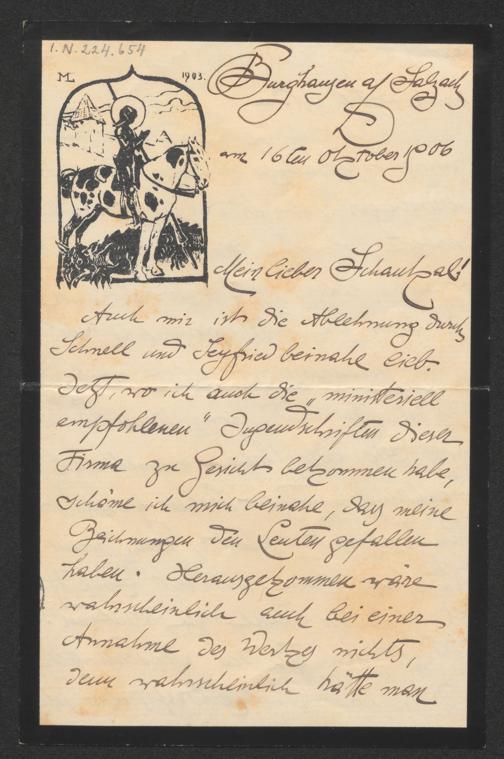 I.N. 224.654
ML 1903.
Burghausen a/ Salzach
am 16ten Oktober 1906
Mein lieber Schaukal!
Auch mir ist die Ablehnung durch
Schnell und Seyfried beinahe lieb.
Jetzt, wo ich auch die „ministeriell
empfohlenen" Jugendschriften dieser
Firma zu Gesicht bekommen habe,
schäme ich mich beinahe, dass meine
Zeichnungen den Leuten gefallen
haben. Herausgekommen wäre
wahrscheinlich auch bei einer
Annahme des Werkes nichts,
denn wahrscheinlich hätte man